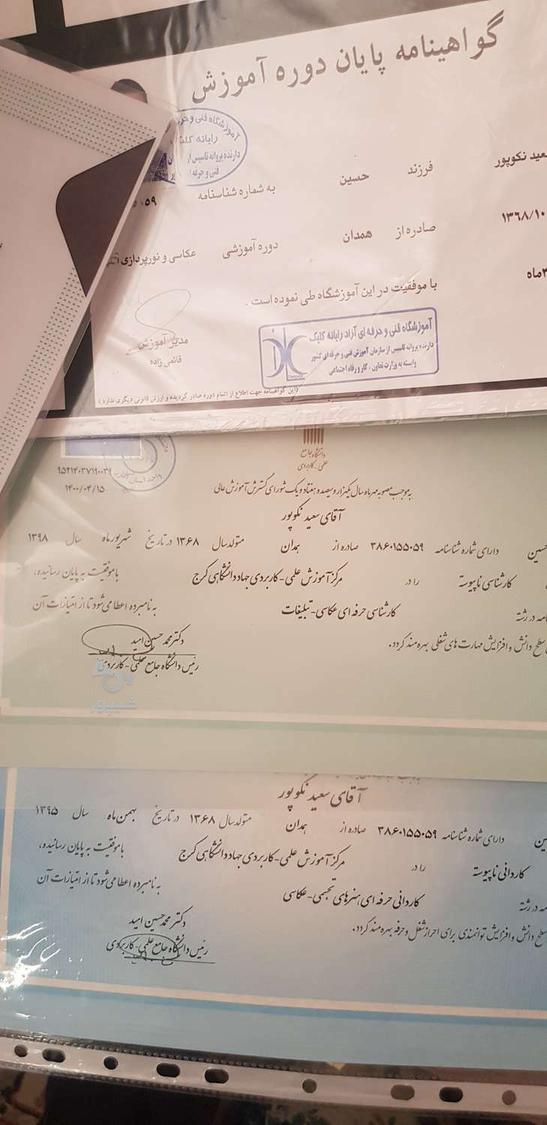 گواهینامه پایان دوره آموزش
آموزشگاه فنی و حرفه
رایانه کلیک
دارنده پروانه تاسیس از
سعید نکوپور
فرزند حسین به شماره شناسنامه ۰۵۹
۱۳۶۸/۱۰
صادره از همدان دوره آموزشی عکاسی و نورپردازی
ماه
با موفقیت در این آموزشگاه طی نموده است .
آموزشگاه فنی و حرفه ای آزاد رایانه کلیک
دارنده پروانه تاسیس از سازمان آموزش فنی و حرفه ای کشور
وابسته به وزارت تعاون ، کار و رفاه اجتماعی
مدیر آموزش
قائمی زاده
(این گواهینامه جهت اطلاع از اتمام دوره صادر گردیده و ارزش قانونی دیگری ندارد)
دانشگاه جامع
علمی-کاربردی
۱۴۰۰/۰۴/۱۵
به موجب مصوبه مهرماه سال یکهزار و سیصد و هفتاد و یک شورای گسترش آموزش عالی
آقای سعید نکوپور
حسین دارای شماره شناسنامه ۳۸۶۰۱۵۵۰۵۹ صادره از همدان متولد سال ۱۳۶۸ در تاریخ شهریور ماه سال ۱۳۹۸
کارشناسی ناپیوسته را در مرکز آموزش علمی-کاربردی جهاد دانشگاهی کرج با موفقیت به پایان رسانیده،
در رشته کارشناسی حرفه ای عکاسی-تبلیغات به نامبرده اعطا می شود تا از امتیازات آن
سطح دانش و افزایش مهارت های شغلی بهره مند گردد.
دکتر محمدحسین امید
رئیس دانشگاه جامع علمی-کاربردی
شیپور
آقای سعید نکوپور
دارای شماره شناسنامه ۳۸۶۰۱۵۵۰۵۹ صادره از همدان متولد سال ۱۳۶۸ در تاریخ بهمن ماه سال ۱۳۹۵
کاردانی ناپیوسته را در مرکز آموزش علمی-کاربردی جهاد دانشگاهی کرج با موفقیت به پایان رسانیده،
در رشته کاردانی حرفه ای هنرهای تجسمی-عکاسی به نامبرده اعطا می شود تا از امتیازات آن
سطح دانش و افزایش توانمندی برای احراز شغل و حرفه بهره مند گردد.
دکتر محمدحسین امید
رئیس دانشگاه جامع علمی-کاربردی